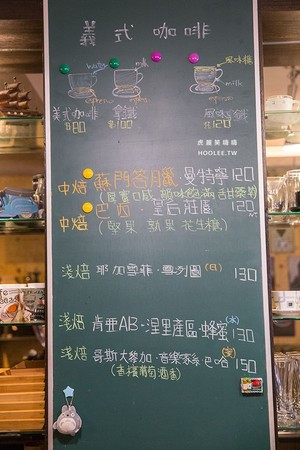 義式咖啡
water
milk
espresso
espresso
風味糖
milk
espresso
美式咖啡 $80
拿鐵 $100
風味拿鐵 $120
虎麗笑嘻嘻
HOOLEE.TW
中焙 蘇門答臘・曼特寧 120
(果實口感 甜菜蔔)
中焙 巴西・皇后莊園 120
(堅果 花生糖)
淺焙 耶加雪菲・ (日) 130
淺焙 肯亞AB・涅里產區・蜂蜜 (水) 130
淺焙 哥斯大黎加・音樂家系・巴哈 (蜜) 150
(香檳葡萄酒香)